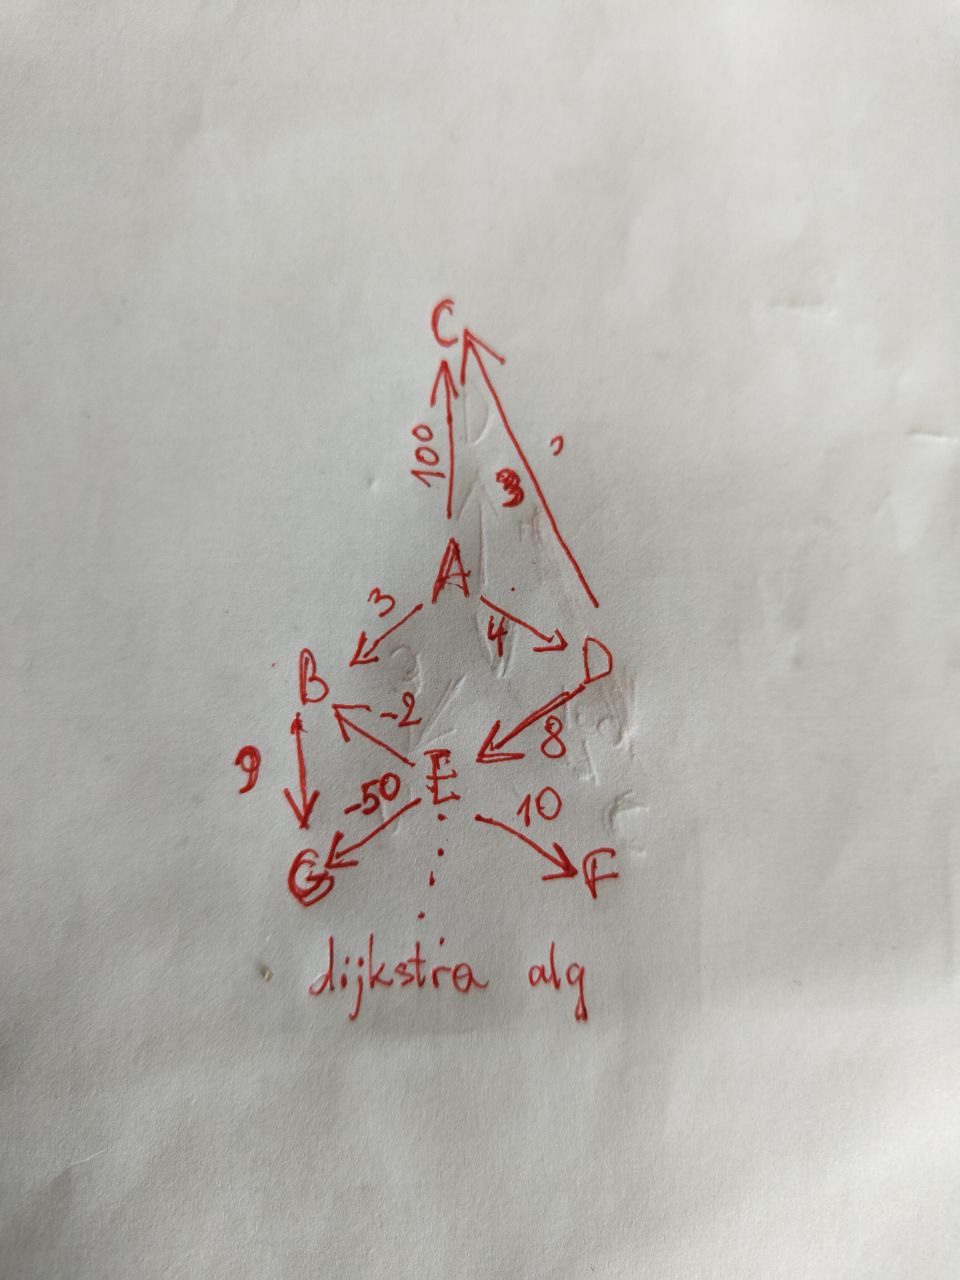 C
100
3
A
3
4
B
D
-2
9
8
E
-50
10
G
F
dijkstra alg